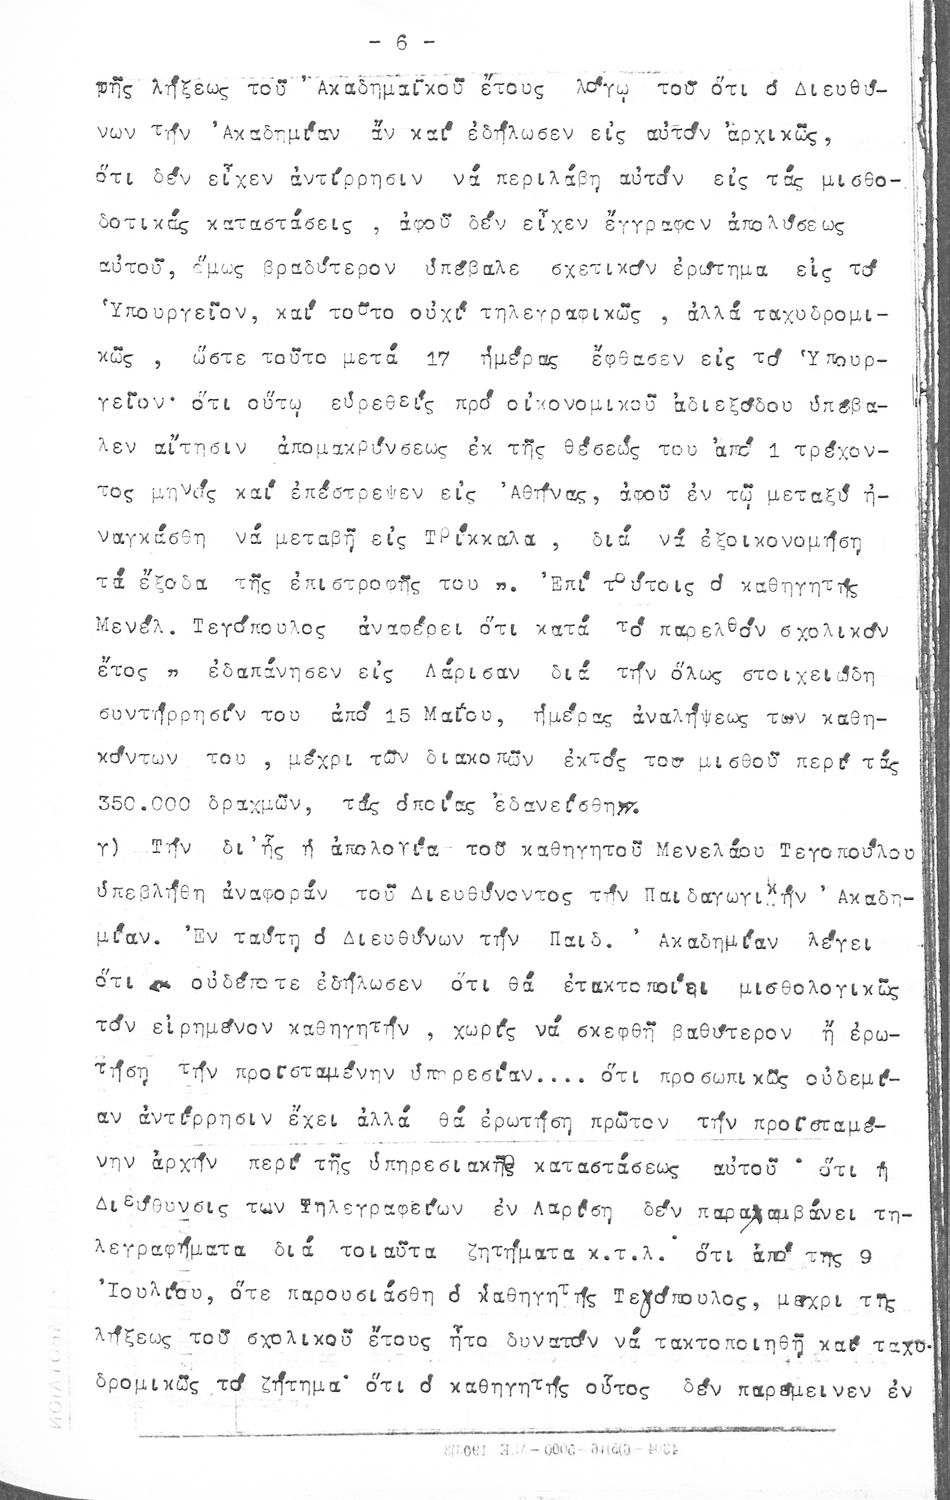 - 6 -
τῆς λήξεως τοῦ Ἀκαδημαϊκοῦ ἔτους λόγῳ τοῦ ὅτι ὁ Διευθύ-
νων τήν Ἀκαδημίαν ἄν καί ἐδήλωσεν εἰς αὐτόν ἀρχικῶς,
ὅτι δέν εἶχεν ἀντίρρησιν νά περιλάβη αὐτόν εἰς τάς μισθο-
δοτικάς καταστάσεις , ἀφοῦ δέν εἶχεν ἔγγραφον ἀπολύσεως
αὐτοῦ, ὅμως βραδύτερον ὑπέβαλε σχετικόν ἐρώτημα εἰς τό
Ὑπουργεῖον, καί τοῦτο οὐχί τηλεγραφικῶς , ἀλλά ταχυδρομι-
κῶς , ὥστε τοῦτο μετά 17 ἡμέρας ἔφθασεν εἰς τό Ὑπουρ-
γεῖον· ὅτι οὕτῳ εὑρεθείς πρό οἰκονομικοῦ ἀδιεξόδου ὑπέβα-
λεν αἴτησιν ἀπομακρύνσεως ἐκ τῆς θέσεώς του ἀπό 1 τρέχον-
τος μηνός καί ἐπέστρεψεν εἰς Ἀθήνας, ἀφοῦ ἐν τῷ μεταξύ ἠ-
ναγκάσθη νά μεταβῆ εἰς Τρίκκαλα , διά νά ἐξοικονομήση
τά ἔξοδα τῆς ἐπιστροφῆς του ". Ἐπί τούτοις ὁ καθηγητής
Μενέλ. Τεγόπουλος ἀναφέρει ὅτι κατά τό παρελθόν σχολικόν
ἔτος " ἐδαπάνησεν εἰς Λάρισαν διά τήν ὅλως στοιχειώδη
συντήρρησίν του ἀπό 15 Μαΐου, ἡμέρας ἀναλήψεως των καθη-
κόντων του , μέχρι τῶν διακοπῶν ἐκτός του μισθοῦ περί τάς
350.000 δραχμῶν, τάς ὁποίας ἐδανείσθη".
γ) Τήν δι'ἧς ἡ ἀπολογία τοῦ καθηγητοῦ Μενελάου Τεγοπούλου
ὑπεβλήθη ἀναφοράν τοῦ Διευθύνοντος τήν Παιδαγωγικήν Ἀκαδη-
μίαν. Ἐν ταύτη ὁ Διευθύνων τήν Παιδ. Ἀκαδημίαν λέγει
ὅτι " οὐδέποτε ἐδήλωσεν ὅτι θά ἐτακτοποίει μισθολογικῶς
τόν εἰρημένον καθηγητήν , χωρίς νά σκεφθῆ βαθύτερον ἤ ἐρω-
τήση τήν προϊσταμένην ὑπηρεσίαν.... ὅτι προσωπικῶς οὐδεμί-
αν ἀντίρρησιν ἔχει ἀλλά θά ἐρωτήση πρῶτον τήν προϊσταμέ-
νην ἀρχήν περί τῆς ὑπηρεσιακῆς καταστάσεως αὐτοῦ · ὅτι ἡ
Διεύθυνσις των Τηλεγραφείων ἐν Λαρίση δέν παραλαμβάνει τη-
λεγραφήματα διά τοιαῦτα ζητήματα κ.τ.λ.· ὅτι ἀπό της 9
Ἰουλίου, ὅτε παρουσιάσθη ὁ καθηγητής Τεγόπουλος, μεχρι της
λήξεως τοῦ σχολικοῦ ἔτους ἦτο δυνατόν νά τακτοποιηθῆ καί ταχυ-
δρομικῶς τό ζήτημα· ὅτι ὁ καθηγητής οὗτος δέν παρέμεινεν ἐν